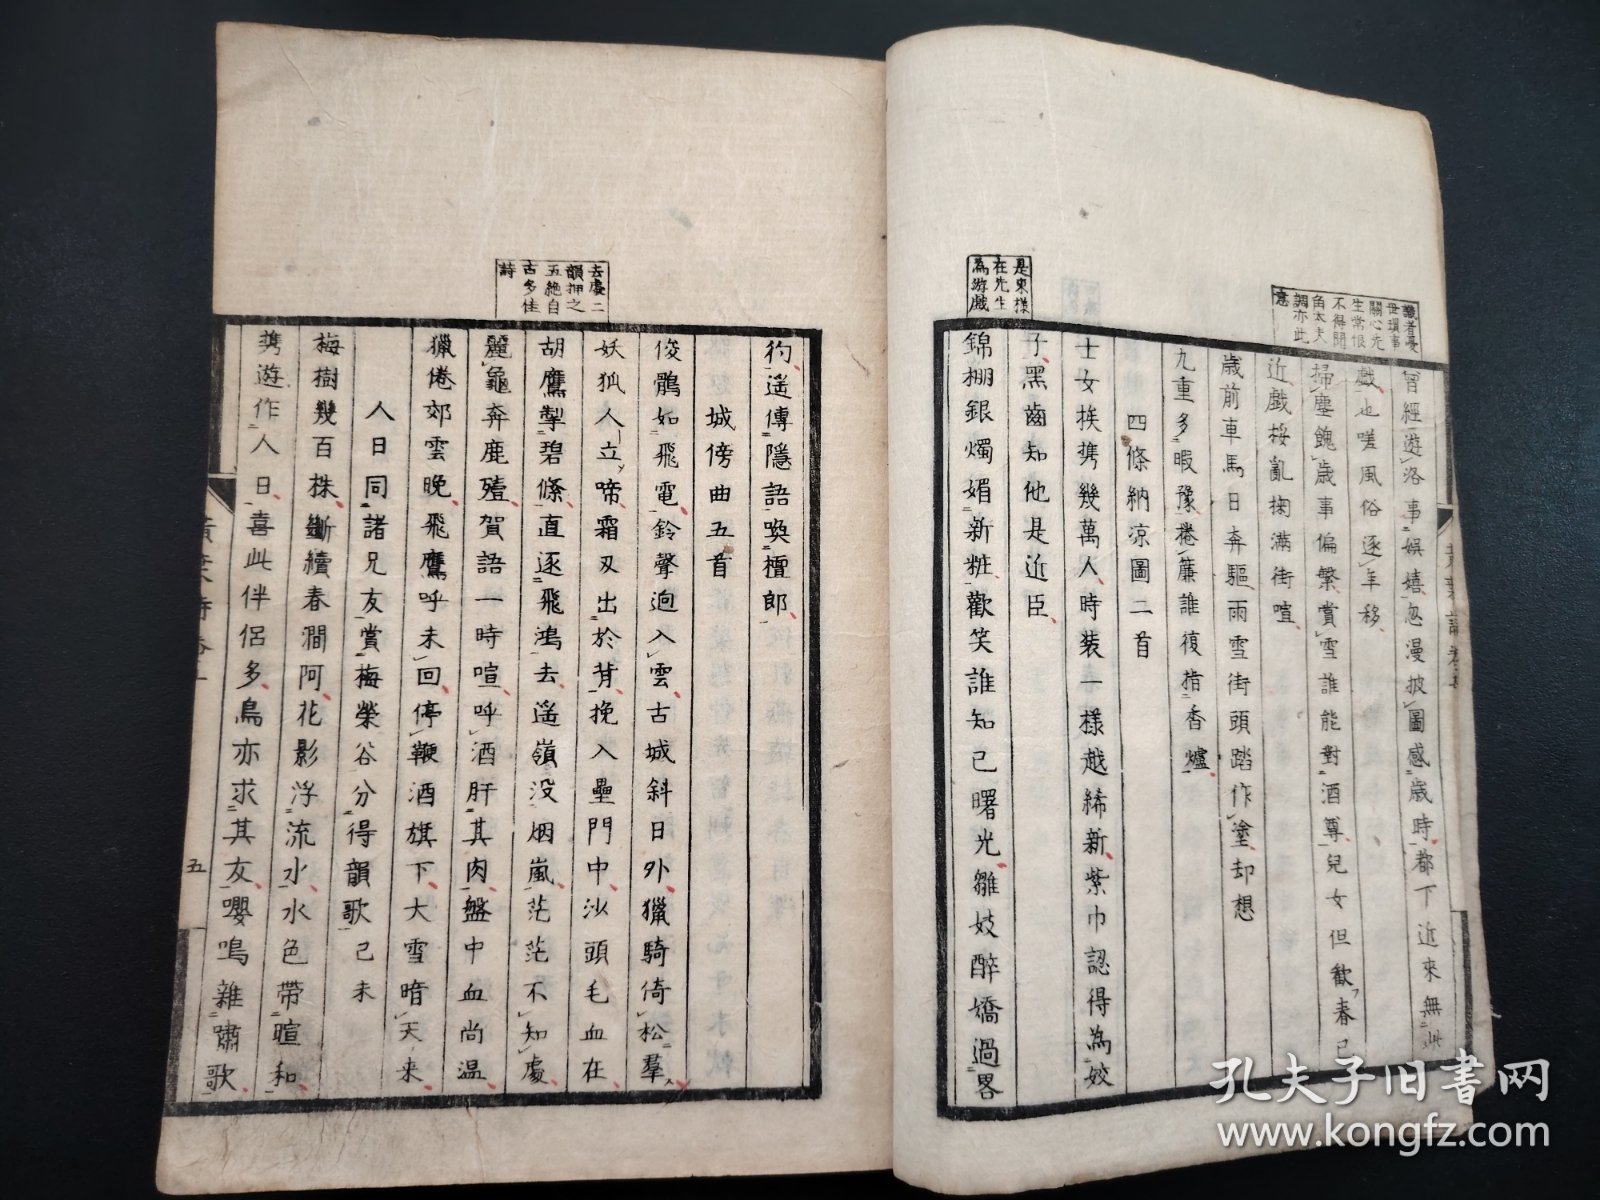 曾經遊洛事娯嬉忽漫披圖感歳時都下近來無此
戯也嗟風俗逐年移
掃塵餽歳事偏繁賞雪誰能對酒尊兒女但歡春已
近戯挼亂掬滿街喧
歳前車馬日奔驅雨雪街頭踏作塗却想
九重多暇豫捲簾誰復撥香爐
四條納凉圖二首
士女挨携幾萬人時裝一樣越絺新紫巾認得為姣
子黑齒知他是近臣
錦棚銀燭媚新粧歡笑誰知已曙光雛妓醉嬌過畧
彴遥傳隱語喚檀郎
城傍曲五首
俊鶻如飛電鈴聲迥入雲古城斜日外獵騎倚松羣
妖狐人立啼霜刃出於背挽入壘門中沙頭毛血在
胡鷹掣碧絛直逐飛鴻去遥嶺没烟嵐茫茫不知處
麗龜奔鹿殪賀語一時喧呼酒肝其肉盤中血尚温
獵倦郊雲晩飛鷹呼未回停鞭酒旗下大雪暗天来
人日同諸兄友賞梅榮谷分得韻歌己未
梅樹幾百株斷續春澗阿花影浮流水水色帶暄和
携遊作人日喜此伴侶多鳥亦求其友嚶鳴雜嘯歌
五
識者憂
世瑣事
關心先
生常恨
不得聞
角太夫
調亦此
意
是東様
在先生
為游戯
去處二
韻押之
五絶自
古多佳
詩
孔夫子旧書网
www.kongfz.com